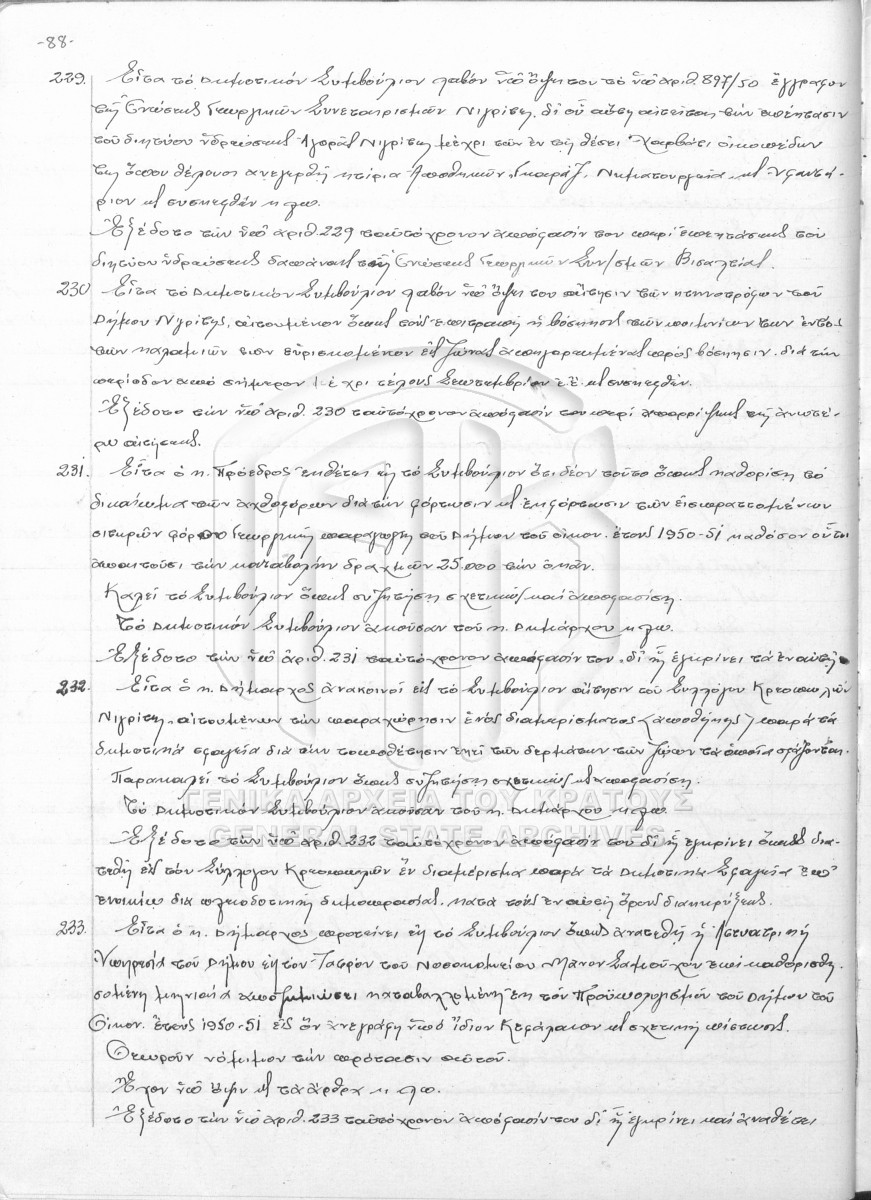 -88-
229. Εἶτα τὸ Δημοτικὸν Συμβούλιον λαβὸν ὑπ' ὄψη του τὸ ὑπ' ἀριθ. 897/50 ἔγγραφον
τῆς Ἑνώσεως Γεωργικῶν Συνεταιρισμῶν Νιγρίτης, δι' οὗ αὕτη αἰτεῖται τὴν ἐπέκτασιν
τοῦ δικτύου ὑδρεύσεως Ἀγορᾶς Νιγρίτης μέχρι τῶν ἐν τῇ θέσει Χαρβάτι οἰκοπέδων
της ὅπου θέλουσι ἀνεγερθῇ κτίρια Ἀποθηκῶν, Γκαράζ, Νηματουργεῖα κ Ὑφαντή-
ριον κ συσκεφθὲν κλπ.
Ἐξέδοτο τὴν ὑπ' ἀριθ. 229 ταὐτόχρονον ἀπόφασίν του περὶ ἐπεκτάσεως τοῦ
δικτύου ὑδρεύσεως δαπάναις τῆς Ἑνώσεως Γεωργικῶν Συν/σμῶν Βισαλτίας.
230 Εἶτα τὸ Δημοτικὸν Συμβούλιον λαβὸν ὑπ' ὄψει του αἴτησιν τῶν κτηνοτρόφων τοῦ
Δήμου Νιγρίτης, αἰτουμένων ὅπως τοῖς ἐπιτραπῇ ἡ βόσκησις τῶν ποιμνίων των ἐντὸς
τῶν καλαμιῶν εὑρισκομένων εἰς ζώνας ἀπηγορευμένας πρὸς βόσκησιν διὰ τὴν
περίοδον ἀπὸ σήμερον μέχρι τέλους Σεπτεμβρίου ἔ.ἔ. κ συσκεφθέν.
Ἐξέδοτο τὴν ὑπ' ἀριθ. 230 ταὐτόχρονον ἀπόφασίν του περὶ ἀπορρίψεως τῆς ἀνωτέ-
ρω αἰτήσεως.
231. Εἶτα ὁ κ. Πρόεδρος ἐκθέτει εἰς τὸ Συμβούλιον ὅτι δέον τοῦτο ὅπως καθορίσῃ τὸ
δικαίωμα τῶν ἀχθοφόρων διὰ τὴν φόρτωσιν κ ἐκφόρτωσιν τῶν εἰσπραττομένων
σιτηρῶν φόρου Γεωργικῆς παραγωγῆς τοῦ Δήμου τοῦ οἰκον. ἔτους 1950-51 καθόσον οὗτοι
ἀπαιτοῦσι τὴν καταβολὴν δραχμῶν 25.000 τὴν ὀκάν.
Καλεῖ τὸ Συμβούλιον ὅπως συζητήσῃ σχετικῶς καὶ ἀποφασίσῃ.
Τὸ Δημοτικὸν Συμβούλιον ἀκοῦσαν τοῦ κ. Δημάρχου κλπ.
Ἐξέδοτο τὴν ὑπ' ἀριθ. 231 ταὐτόχρονον ἀπόφασίν του δι' ἧς ἐγκρίνει τὰ ἐν αὐτῇ.
232. Εἶτα ὁ κ. Δήμαρχος ἀνακοινοῖ εἰς τὸ Συμβούλιον αἴτησιν τοῦ Συλλόγου Κρεοπωλῶν
Νιγρίτης αἰτουμένων τὴν παραχώρησιν ἑνὸς διαμερίσματος (ἀποθήκης) παρὰ τὰ
δημοτικὰ σφαγεῖα διὰ τὴν τοποθέτησιν ἐκεῖ τῶν δερμάτων τῶν ζώων τὰ ὁποῖα σφάζονται.
Παρακαλεῖ τὸ Συμβούλιον ὅπως συζητήσῃ σχετικῶς κ ἀποφασίσῃ.
Τὸ Δημοτικὸν Συμβούλιον ἀκοῦσαν τοῦ κ. Δημάρχου κλπ.
ΓΕΝΙΚΑ ΑΡΧΕΙΑ ΤΟΥ ΚΡΑΤΟΥΣ
GENERAL STATE ARCHIVES
Ἐξέδοτο τὴν ὑπ' ἀριθ. 232 ταὐτόχρονον ἀπόφασίν του δι' ἧς ἐγκρίνει ὅπως δια-
τεθῇ εἰς τὸν Σύλλογον Κρεοπωλῶν ἓν διαμέρισμα παρὰ τὰ Δημοτικὰ Σφαγεῖα ἐπ'
ἐνοικίῳ διὰ πλειοδοτικῆς δημοπρασίας κατὰ τοὺς ἐν αὐτῇ ὅρους διακηρύξεως.
233. Εἶτα ὁ κ. Δήμαρχος προτείνει εἰς τὸ Συμβούλιον ὅπως ἀνατεθῇ ἡ Ἀστυατρικὴ
Ὑπηρεσία τοῦ Δήμου εἰς τὸν Ἰατρὸν τοῦ Νοσοκομείου Μάνον Σαμοὺχον ἐπὶ καθορισθη-
σομένῃ μηνιαίᾳ ἀποζημιώσει καταβαλλομένῃ ἐκ τοῦ Προϋπολογισμοῦ τοῦ Δήμου τοῦ
Οἰκον. ἔτους 1950-51 εἰς ὃν ἀνεγράφη ὑπὸ ἴδιον Κεφάλαιον κ σχετικὴ πίστωσις.
Θεωροῦν νόμιμον τὴν πρότασιν αὐτοῦ.
Ἔχον ὑπ' ὄψιν κ τὰ ἄρθρα κ.λπ.
Ἐξέδοτο τὴν ὑπ' ἀριθ. 233 ταὐτόχρονον ἀπόφασίν του δι' ἧς ἐγκρίνει καὶ ἀναθέτει